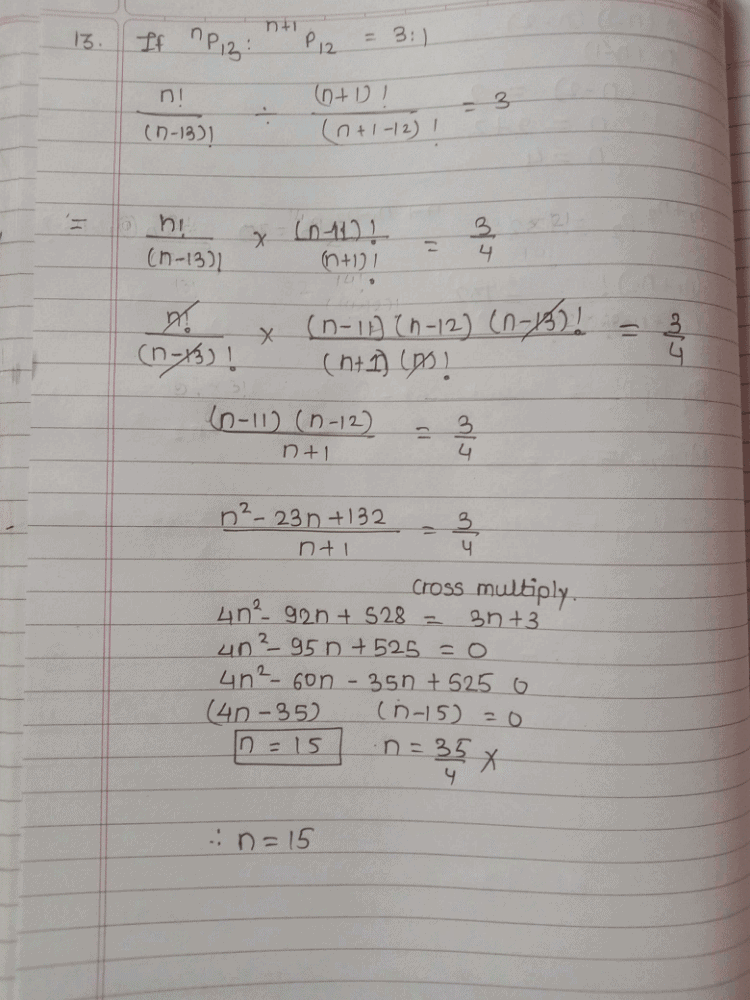 13. If ⁿP₁₃ : ⁿ⁺¹P₁₂ = 3:1
n!/(n-13)! ÷ (n+1)!/(n+1-12)! = 3
= n!/(n-13)! × (n-11)!/(n+1)! = 3/4
n!/(n-13)! × (n-11)(n-12)(n-13)!/(n+1)(n)! = 3/4
(n-11)(n-12)/n+1 = 3/4
n²-23n+132/n+1 = 3/4
cross multiply.
4n²-92n+528 = 3n+3
4n²-95n+525 = 0
4n²-60n-35n+525 0
(4n-35) (n-15) = 0
n = 15 n = 35/4 X
∴ n = 15